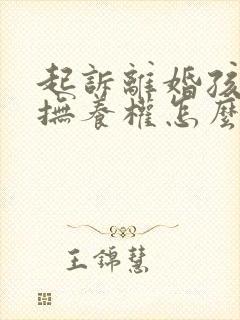 起訴離婚孩
撫養權怎麼
王錦慧